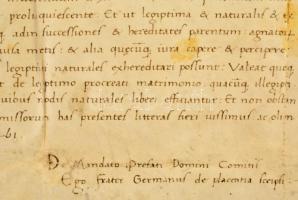 proli quiescente. Et ut legiptima & naturalis & ex
q. adin successiones & hereditates parentum agnator
uisa metis: & alia quecūq iura capere & percipere:
legiptiṁ naturales exhereditari possunt: Valeae quoq
t de legiptimo procreati matrimonio quacūq illegipti
uibus nodis naturales liberi efficiantur: Et non obstan
missorum has presentes litteras fieri uissimus ac olim
61.
De Mandato Prefati Domini Comitis
Ego frater Germanus de placentia scripsi.